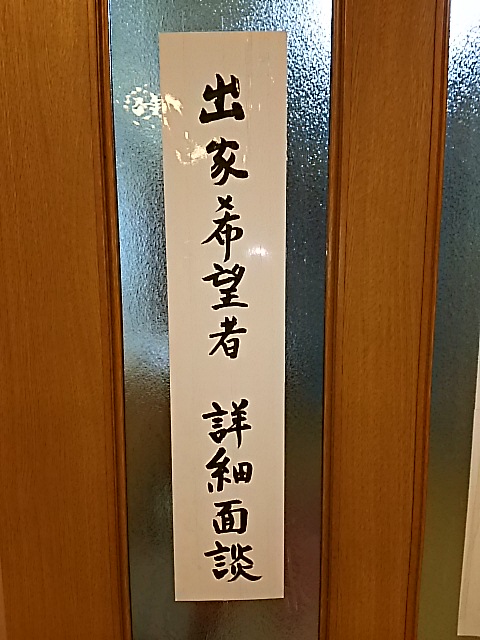 出家希望者 詳細面談